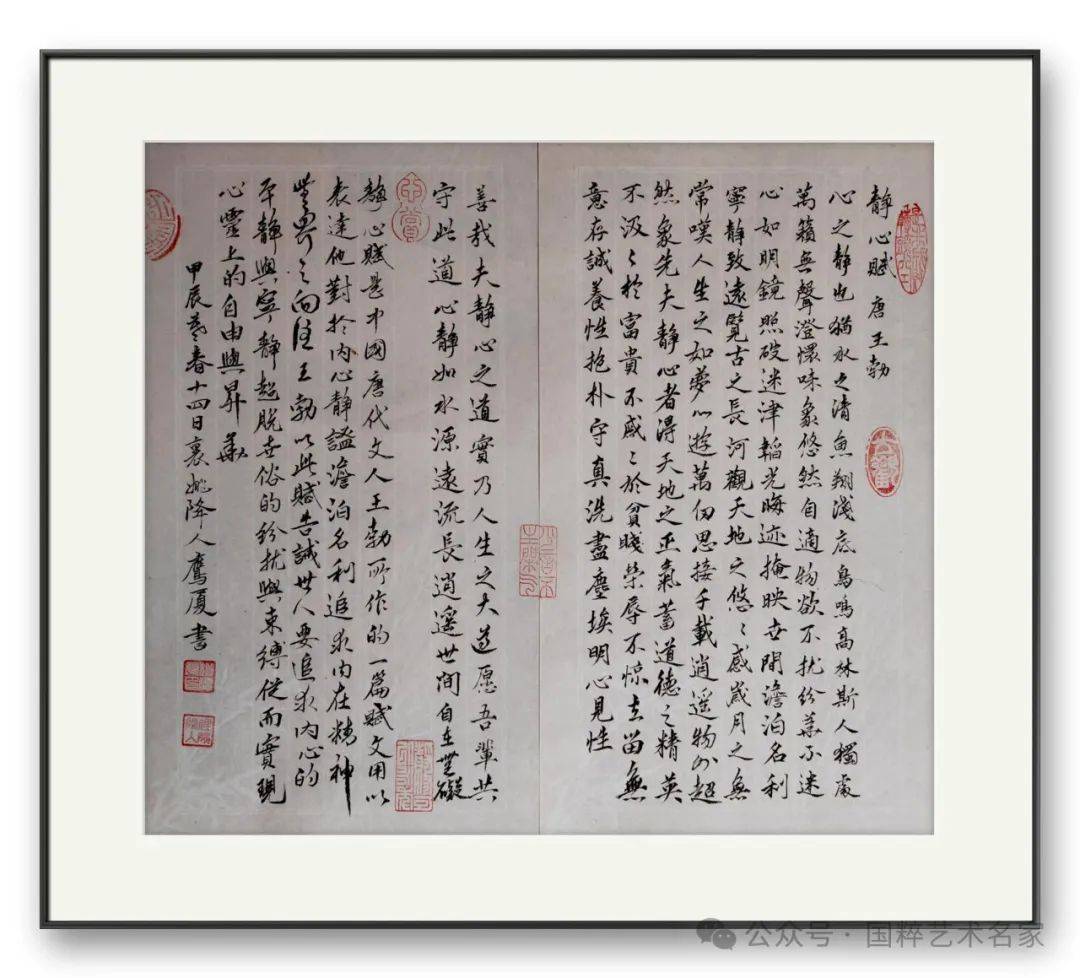 静心賦 唐 王勃
心之静也猶水之清魚翔淺底鳥鳴高林斯人獨處
萬籟無聲澄懷味象悠然自適物欲不扰紛華不迷
心如明鏡照破迷津韜光晦迹掩映世間澹泊名利
寧静致遠覽古之長河觀天地之悠〻感歲月之無
常嘆人生之如夢心遊萬仞思接千載逍遥物外超
然象先夫静心者得天地之正氣蓄道德之精英
不汲〻於富貴不戚〻於貧賤榮辱不惊去留無
意存誠養性抱朴守真洗盡塵埃明心見性
善哉夫静心之道實乃人生之大道愿吾輩共
守此道心静如水源遠流長逍遥世间自在無礙
静心賦是中國唐代文人王勃所作的一篇賦文用以
表達他對於内心静謐澹泊名利追求内在精神
世界之向往王勃以此賦告誡世人要追求内心的
平静與寧静超脱世俗的紛扰與束縛從而實現
心靈上的自由與昇華
甲辰暮春十四日襄姚降人鷹厦書
公众号·国粹艺术名家